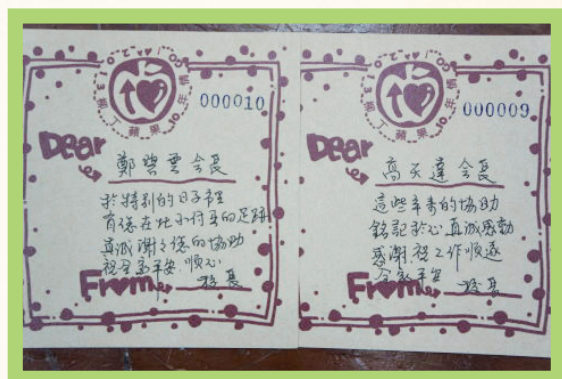 2013
蘋果10年情
000010
Dear
鄭碧雲会長
於特別的日子裡
有您在壯小付出的足跡
真誠謝謝您的協助
祝全家平安 順心
From 校長
2013
蘋果10年情
000009
Dear
高天達会長
這些年來的協助
銘記於心 真誠感動
感謝 祝工作順遂
全家平安
From 校長